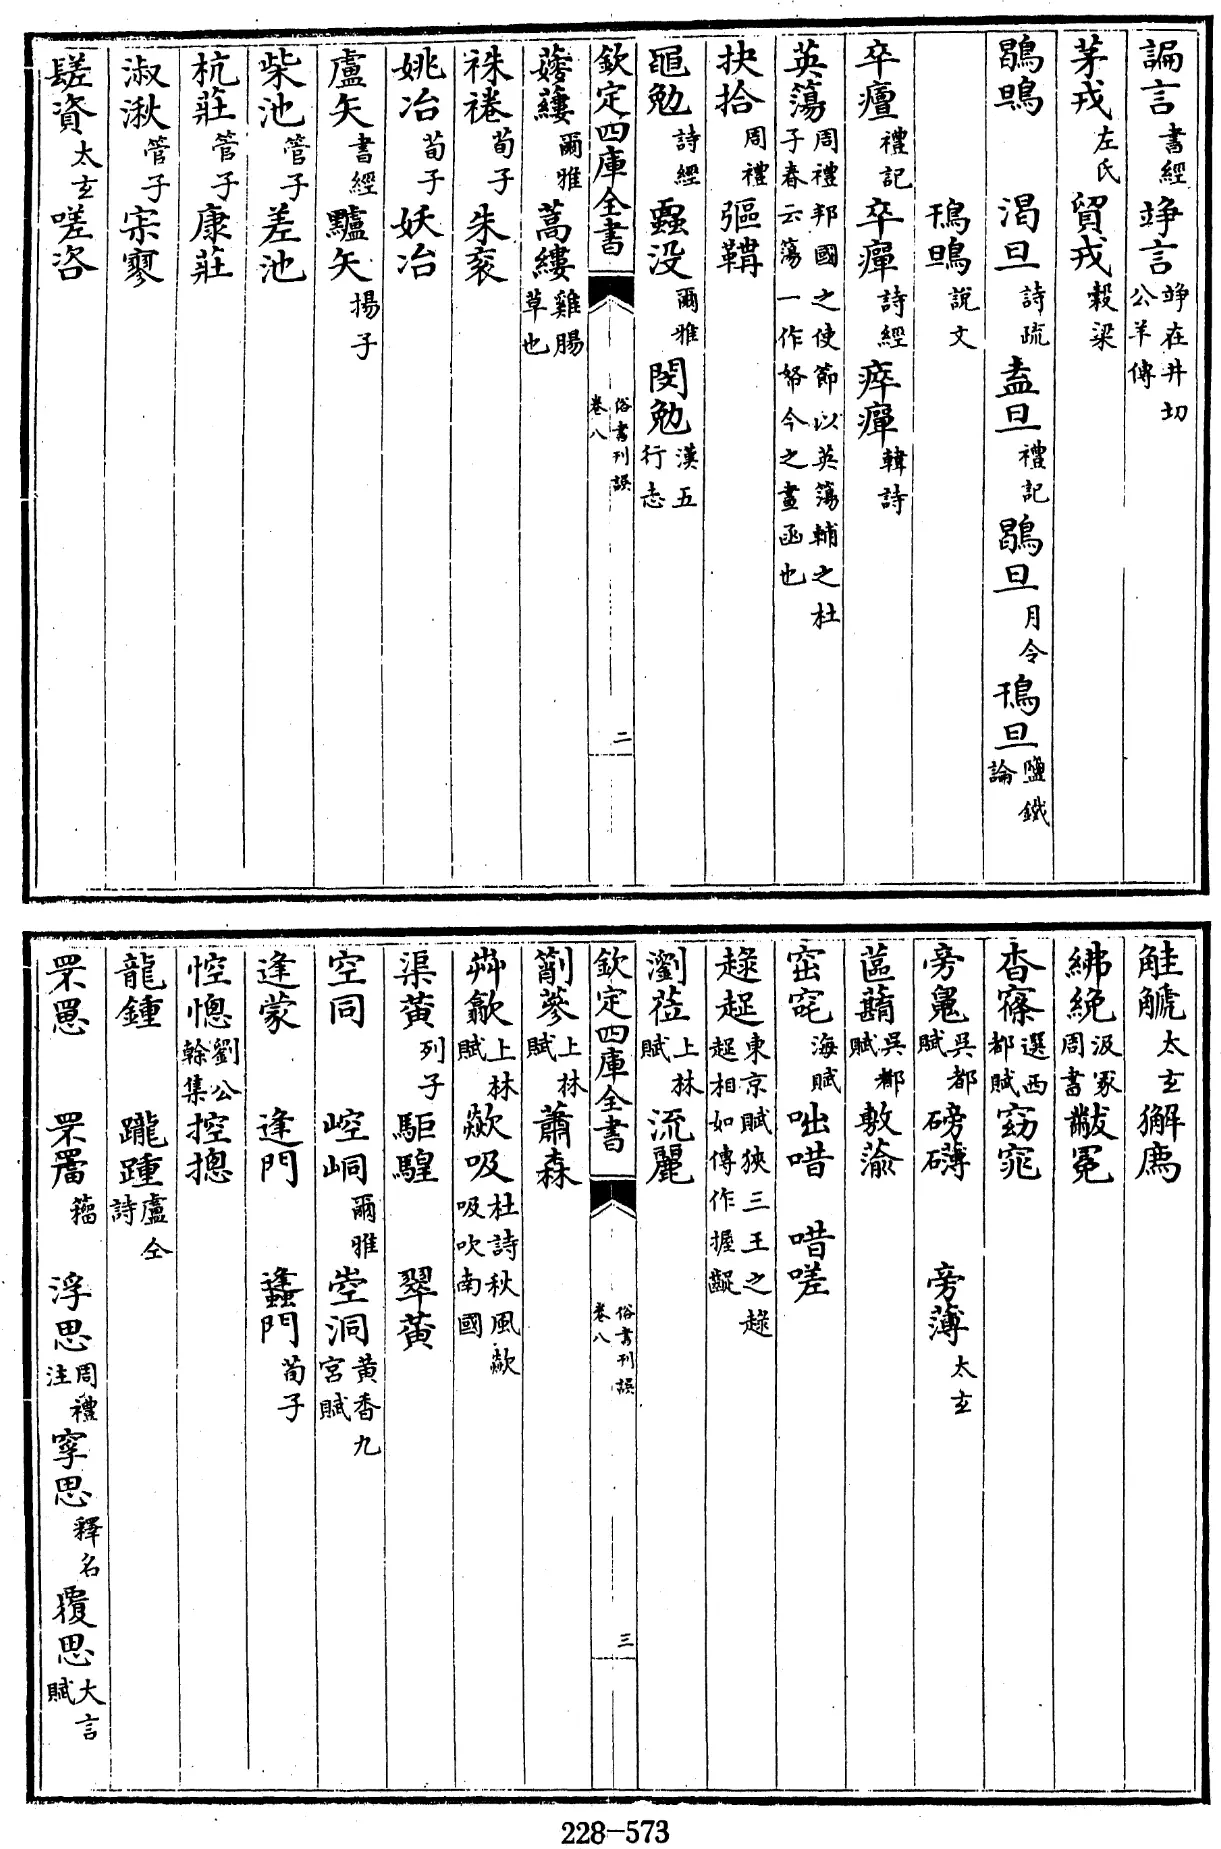 諞言書經竫言竫在井切公羊傳
茅戎左氏貿戎穀梁
鶡鴠 渴旦詩疏盍旦禮記鶡旦月令鳱旦鹽鐵論
鳱鴠說文
卒癉禮記卒瘅詩經瘁瘅韓詩
英蕩周禮邦國之使節以英蕩輔之杜子春云蕩一作帑今之畫函也
抉拾周禮彄鞲
黽勉詩經蠠沒爾雅閔勉漢五行志
欽定四庫全書 俗書刊誤 卷八 二
蔜䕯爾雅蒿縷雞腸草也
袾裷荀子朱衮
姚冶荀子妖冶
盧矢書經黸矢揚子
柴池管子差池
杭莊管子康莊
淑湫管子宋寥
䰈資太玄嗟咨
觟䚦太玄獬廌
紼絻汲冢周書黻冕
杳窱選西都賦窈窕
旁魄吳都賦磅礴 旁薄太玄
蓲蘛吳都賦敷蕍
窋咤海賦咄唶 唶嗟
趢趗東京賦狹三王之趢趗相如傳作握齪
瀏莅上林賦流麗
欽定四庫全書 俗書刊誤 卷八 三
箾蔘上林賦蕭森
芔歙上林賦歘吸杜詩秋風歘吸吹南國
渠黃列子駏騜 翠黃
空同 崆峒爾雅崆洞黃香九宮賦
逢蒙 逢門 蠭門荀子
悾憁劉公幹集控摠
龍鍾 躘踵盧仝詩
罘罳 罘罱籒 浮思周禮注罦思釋名覆思大言賦
228-573